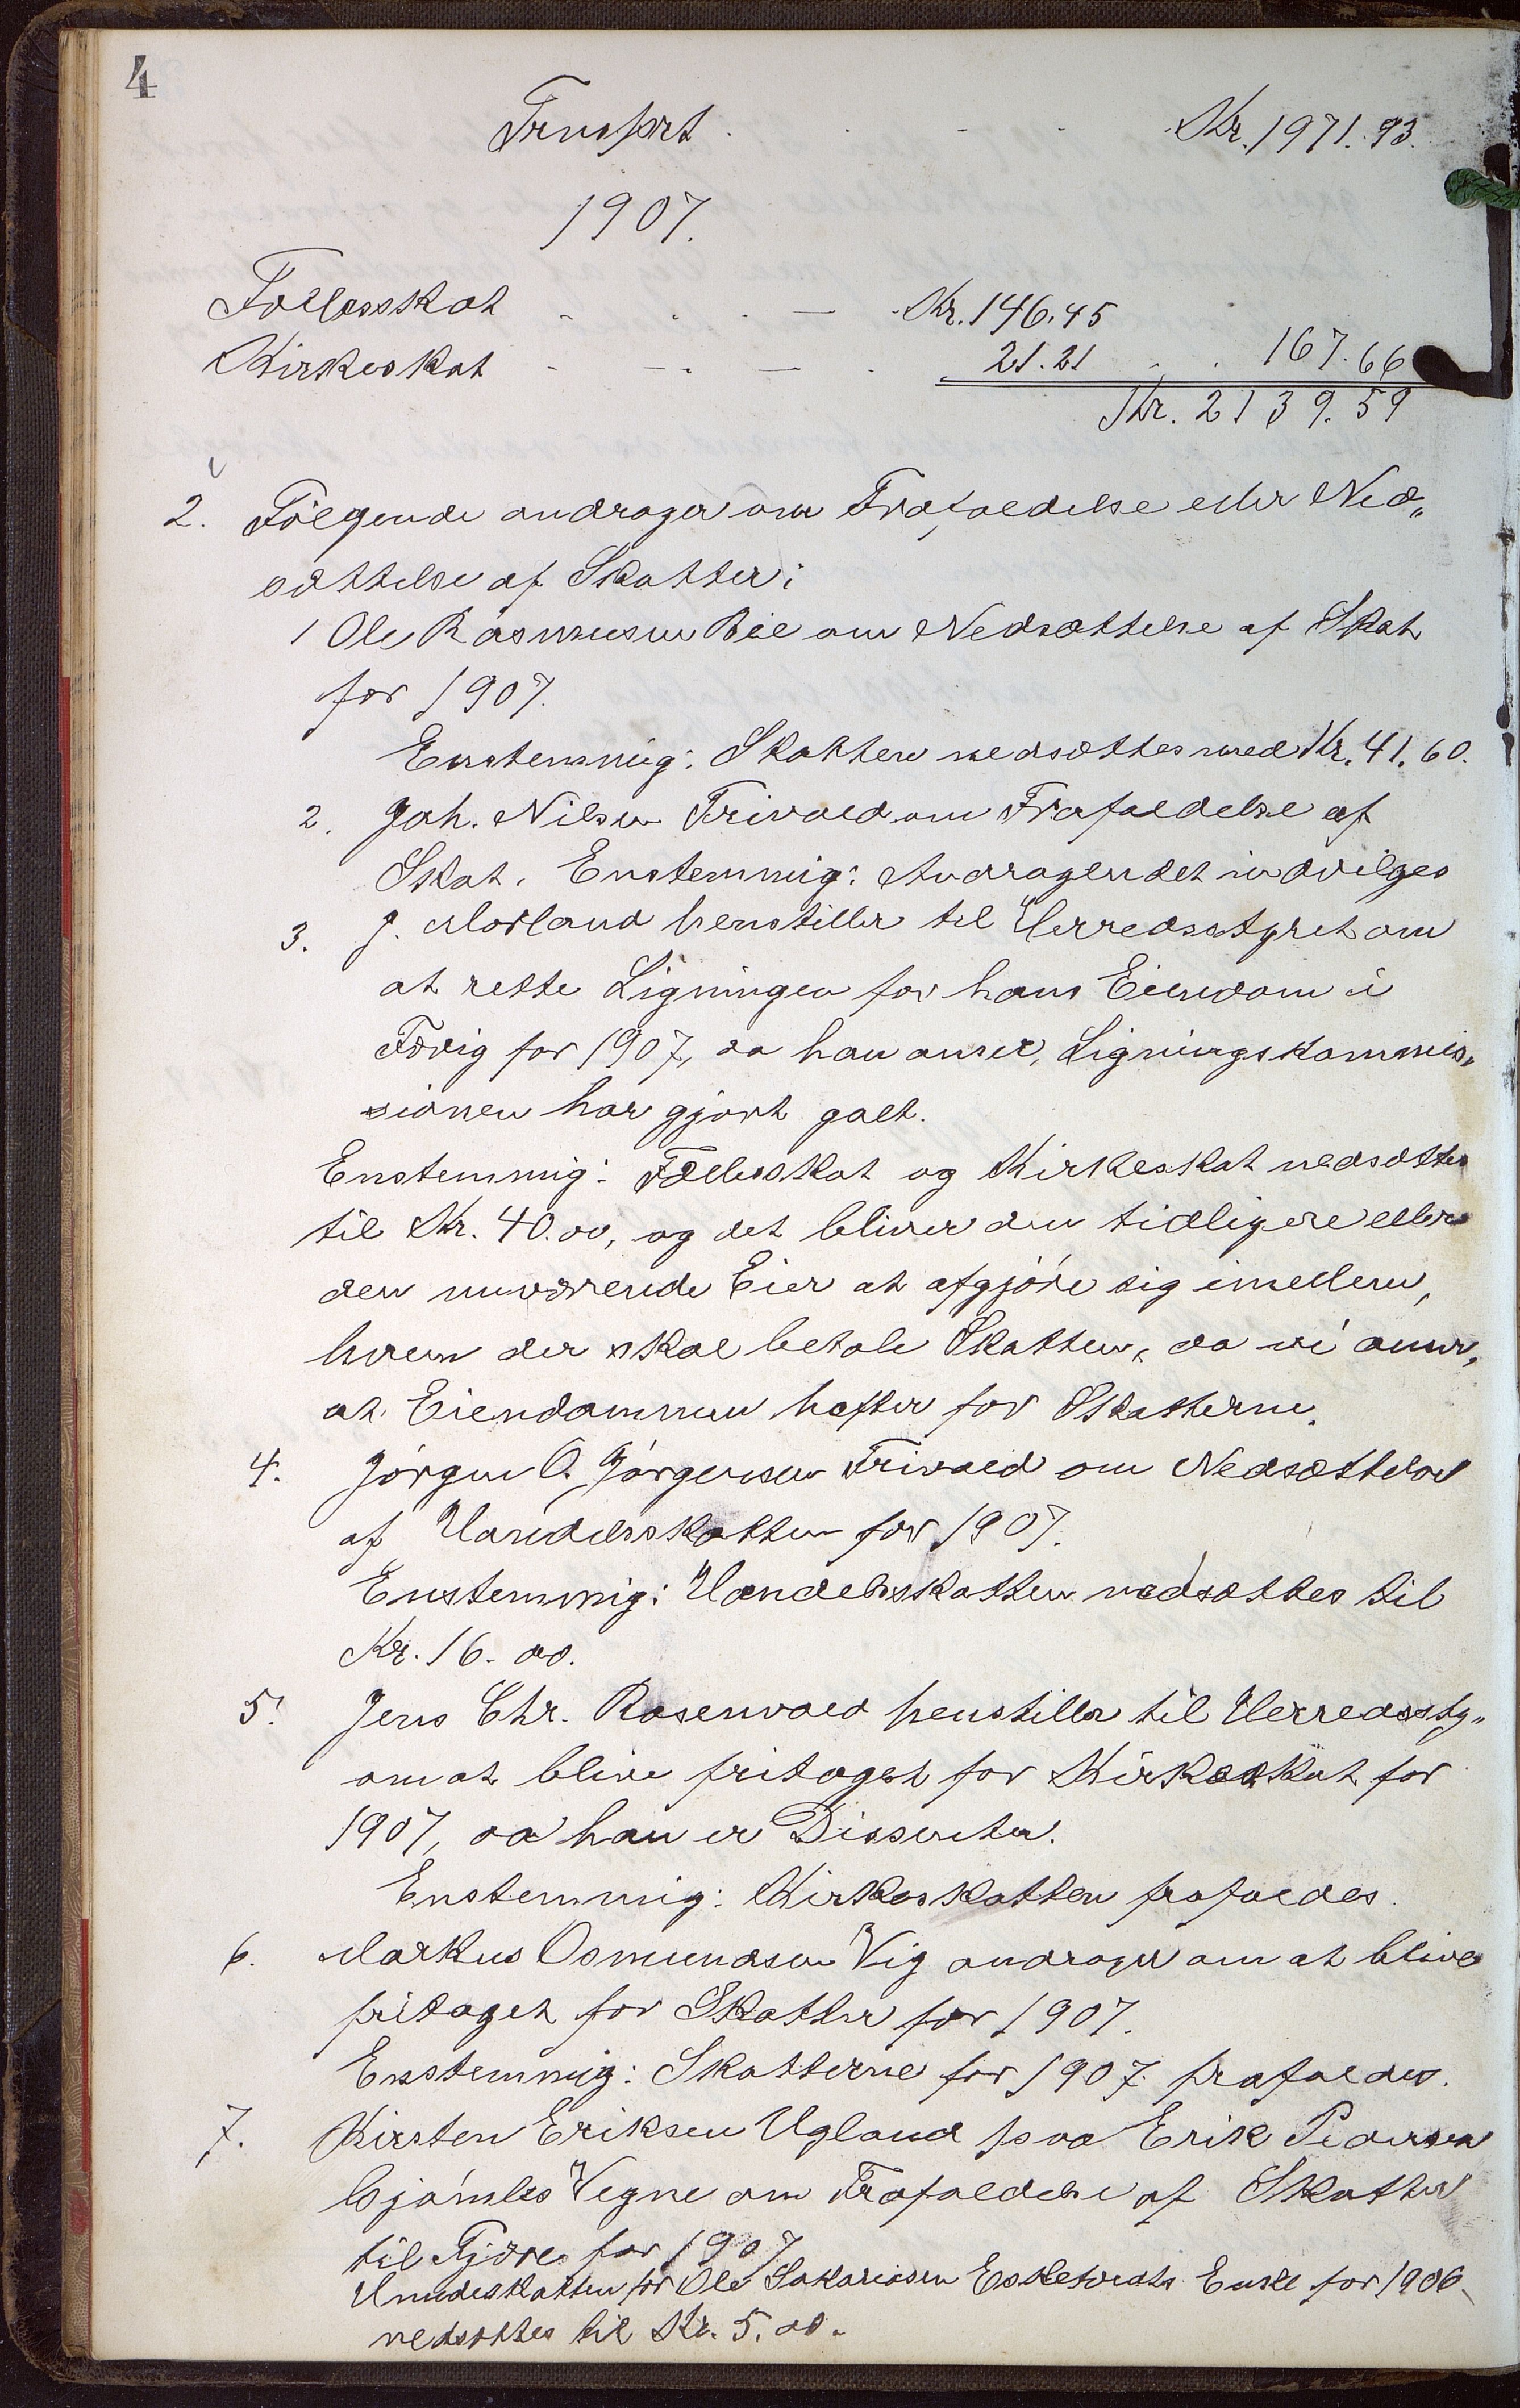 4
Transport . . - . Kr. 1971.93.
1907.
Fællesskat - . . — . Kr. 146.45
Kirkeskat - — . — . 21.21 . . 167.66
Kr. 2139.59
2. Følgende andrager om Frafaldelse eller Ned„
sættelse af Skatter:
1 Ole Rasmusen Bie om Nedsættelse af Skat
for 1907.
Enstemmig: Skatten nedsættes med Kr. 41.60.
2. Joh. Nilsen Trivold om Frafaldelse af
Skat. Enstemmig: Andragendet indvilges
3. J. Morland henstiller til Herredsstyret om
at rette Ligningen for hans Eiendom i
Færvig for 1907, da han anser, Ligningskommis„
sionen har gjort galt.
Enstemmig: Fællesskat og Kirkeskat nedsættes
til Kr. 40.00, og det bliver den tidligere eller
den nuværende Eier at afgjøre sig imellem,
hvem der skal betale Skatten, da vi anser,
at Eiendommen hefter for Skatterne.
4. Jørgen O. Jørgensen Trivold om Nedsættelse
af Handelsskatten for 1907.
Enstemmig: Handelsskatten nedsættes til
Kr. 16.00.
5. Jens Chr. Rosenvold henstiller til Herredssty„
om at blive fritaget for Kirkeskat for
1907, da han er Dissenter.
Enstemmig: Kirkeskatten frafaldes.
6. Markus Osmundsen Vig andrager om at blive
fritaget for Skatter for 1907.
Enstemmig: Skatterne for 1907 frafaldes.
7. Kirsten Eriksen Ugland paa Erik Pedersen
Bjømles Vegne om Frafaldelse af Skatter
til Fjære for 1907
Hundeskatten for Ole Sakariasen Eskedals Enke for 1906
nedsættes til Kr. 5.00.